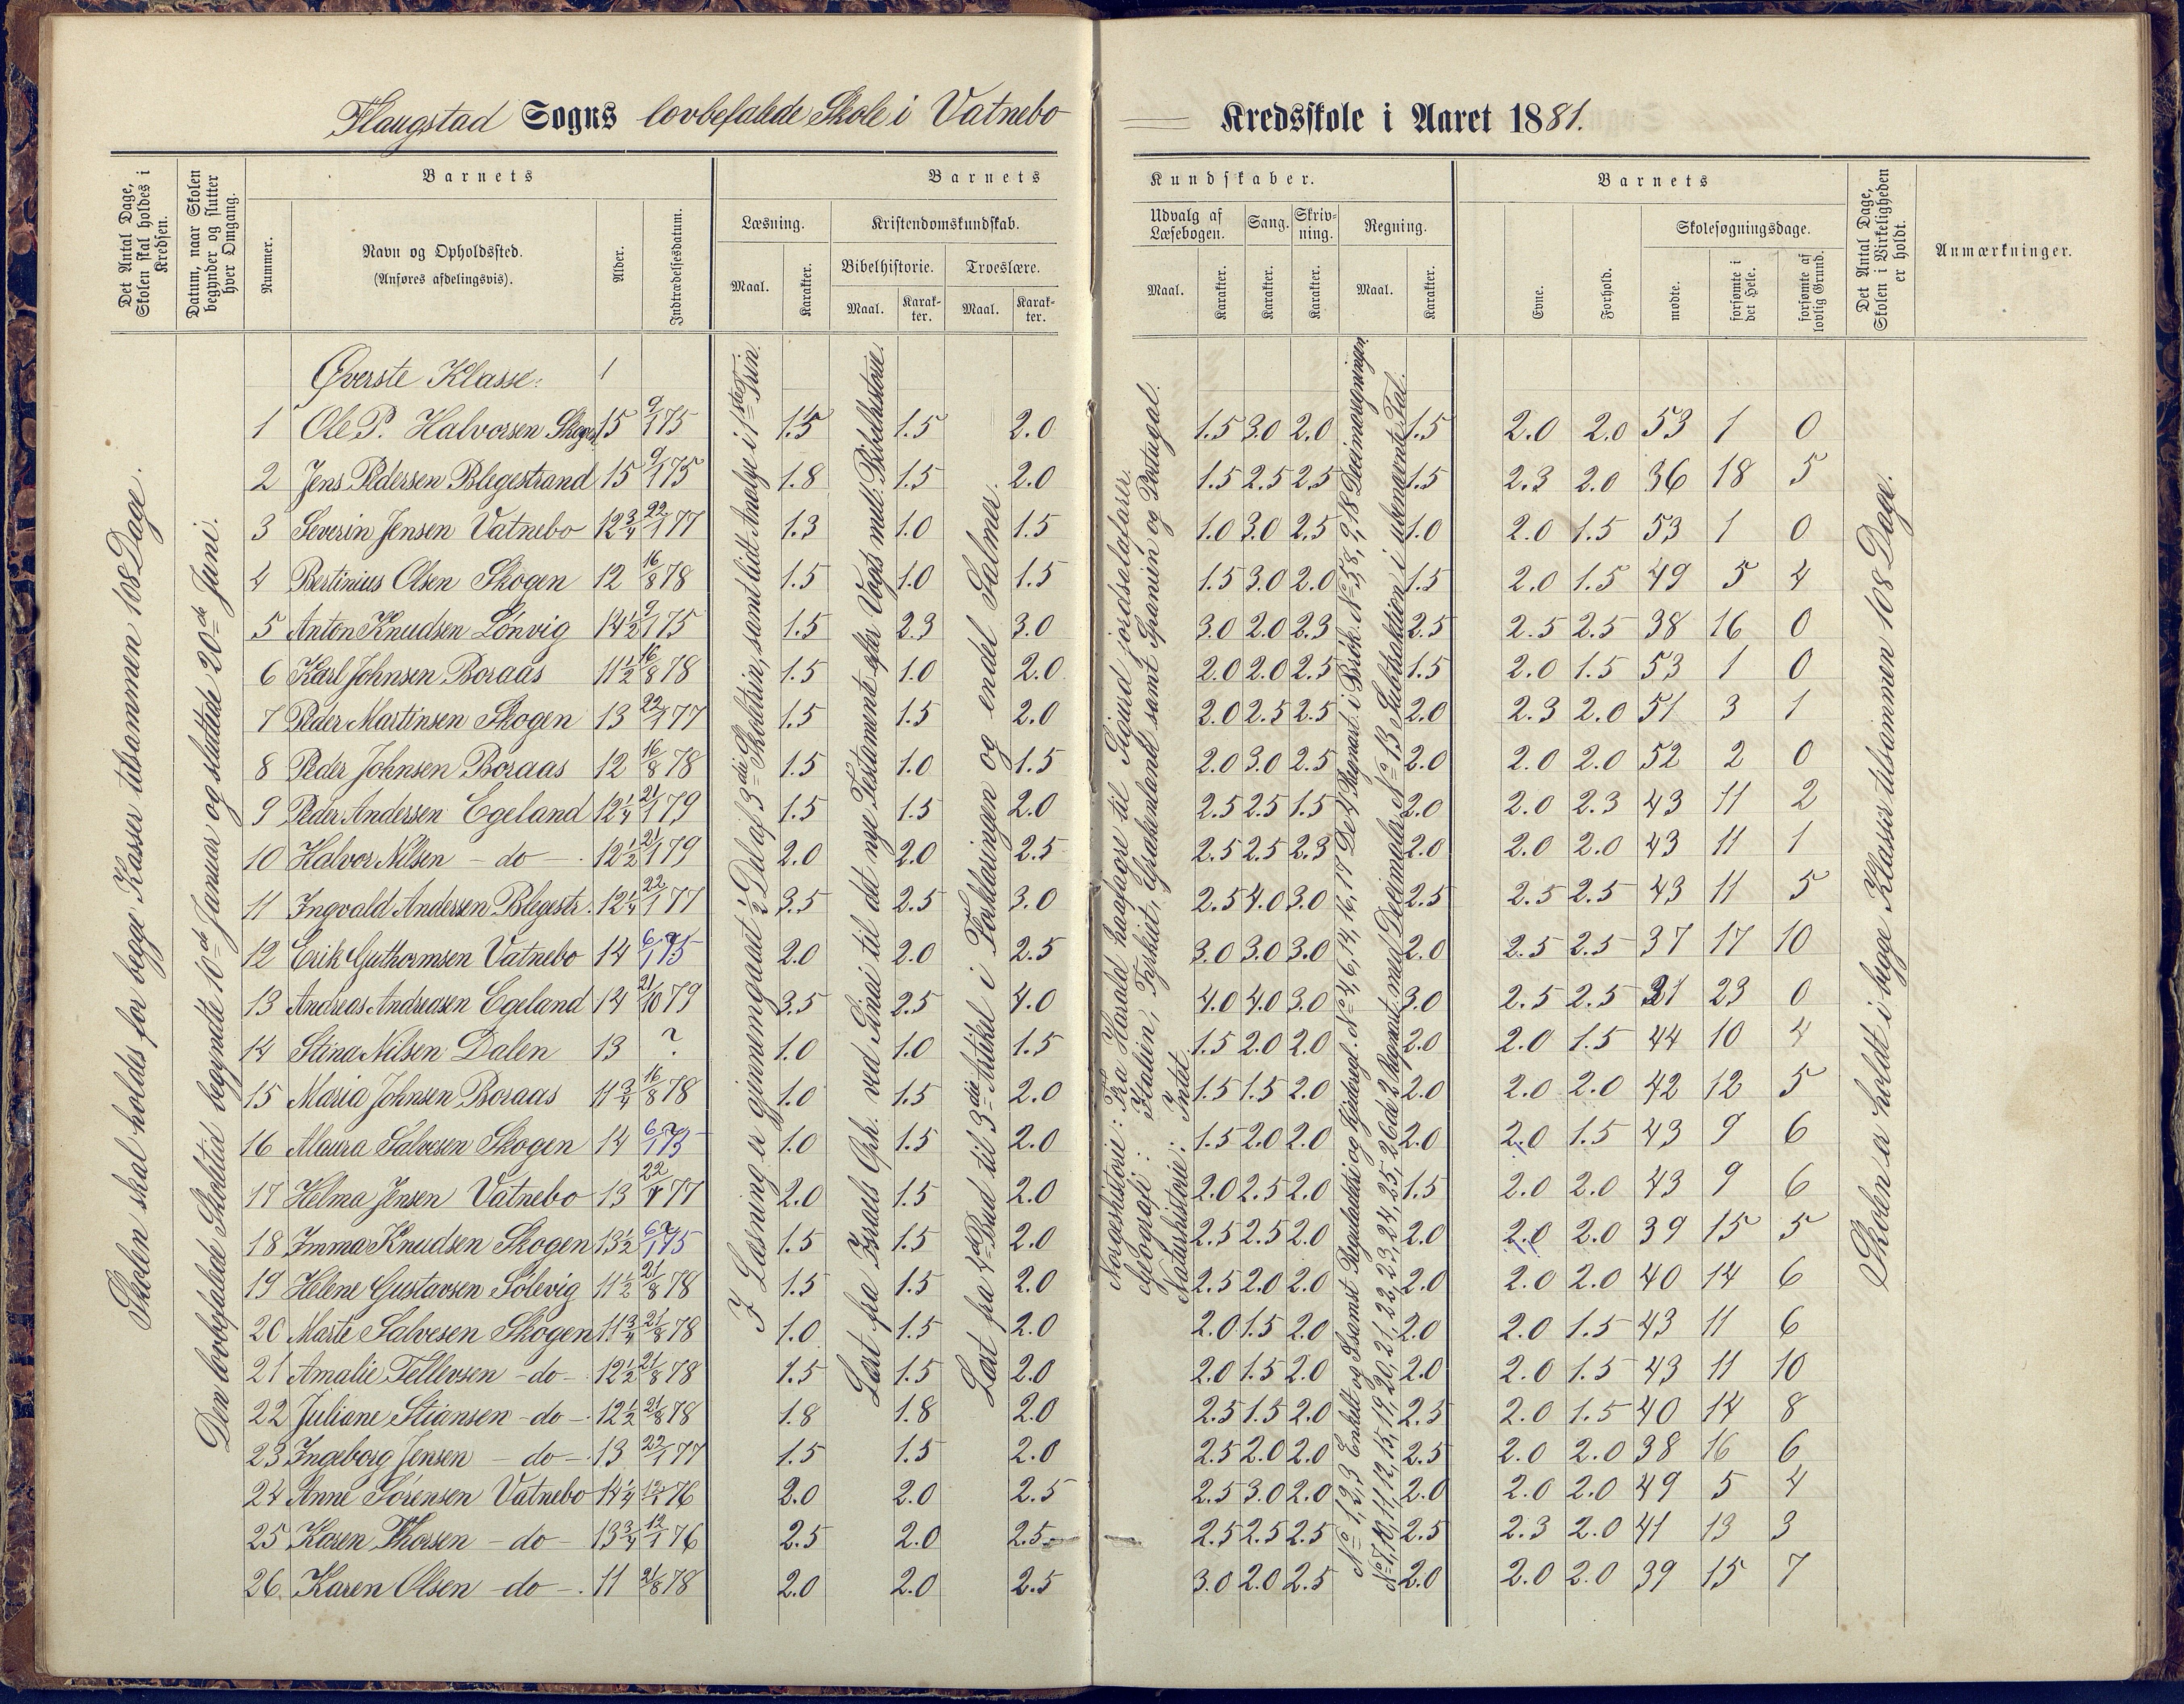 Flaugstad Sogns lovbefalede Skole i Vatnebo Kredsskole i Aaret 1881.
Det Antal Dage, Skolen skal holdes i Kredsen.
Datum, naar Skolen begynder og slutter hver Omgang.
Barnets
Nummer.
Navn og Opholdssted.
(Anføres afdelingsvis).
Alder.
Indtrædelsesdatum.
Barnets Kundskaber.
Læsning.
Maal. Karakter.
Kristendomskundskab.
Bibelhistorie. Troeslære.
Maal. Karakter. Maal. Karakter.
Udvalg af Læsebogen. Sang. Skrivning. Regning.
Maal. Karakter. Karakter. Karakter. Maal. Karakter.
Barnets
Evne. Forhold.
Skolesøgningsdage.
mødte. forsømte i det Hele. forsømte af lovlig Grund.
Det Antal Dage, Skolen i Virkeligheden er holdt.
Anmærkninger.
Skolen skal holdes for begge Klasser tilsammen 108 Dage.
Den lovbefalede Skoletid begyndte 10de Januar og sluttede 20de Juni.
I Læsning er gjennemgaaet ½ Del af 3die Skoletrin, samt lidt Analyse i 1ste Trin.
Lært fra Israels Ørk. ved Sinai til det nye Testamente efter Vogts mell. Bibelhistorie.
Lært fra 4de Bud til 3die Artikel i Forklaringen og endel Salmer.
Norgeshistorie: Fra Harald haarfagre til Sigurd jordsalafarer.
Geografi: Italien, Tyrkiet, Grækenland samt Spanien og Portugal.
Naturhistorie: Intet.
Skolen er holdt i begge Klasser tilsammen 108 Dage.
Øverste Klasse:
1 Ole P. Halvorsen Skogen 15 9/1 75 1.5 1.5 2.0 1.5 3.0 2.0 1.5 2.0 2.0 53 1 0
2 Jens Pedersen Blegestrand 15 9/1 75 1.8 1.5 2.0 1.5 2.5 2.5 1.5 2.3 2.0 36 18 5
3 Severin Jensen Vatnebo 12¾ 22/1 77 1.3 1.0 1.5 1.0 3.0 2.5 1.0 2.0 1.5 53 1 0
4 Bertinius Olsen Skogen 12 16/8 78 1.5 1.0 1.5 1.5 3.0 2.0 1.5 2.0 1.5 49 5 4
5 Anton Knudsen Lönvig 14½ 9/1 75 1.5 2.3 3.0 3.0 2.0 2.3 2.5 2.5 2.5 38 16 0
6 Karl Johnsen Boraas 11½ 16/8 78 1.5 1.0 2.0 2.0 2.0 2.5 1.5 2.0 1.5 53 1 0
7 Peder Martinsen Skogen 13 22/1 77 1.5 1.5 2.0 2.0 2.5 2.5 2.0 2.3 2.0 51 3 1
8 Peder Johnsen Boraas 12 16/8 78 1.5 1.0 1.5 2.0 3.0 2.5 2.0 2.0 2.0 52 2 0
9 Peder Andersen Egeland 12¼ 21/1 79 1.5 1.5 2.0 2.5 2.5 1.5 2.0 2.0 2.3 43 11 2
10 Halvor Nilsen - do - 12½ 21/1 79 2.0 2.0 2.5 2.5 2.5 2.3 2.0 2.0 2.0 43 11 1
11 Ingvald Andersen Blegestr. 12¼ 22/1 77 3.5 2.5 3.0 2.5 4.0 3.0 2.5 2.5 2.5 43 11 5
12 Erik Guthormsen Vatnebo 14 6/1 75 2.0 2.0 2.5 3.0 3.0 3.0 2.0 2.5 2.5 37 17 10
13 Andreas Andreasen Egeland 14 21/10 79 3.5 2.5 4.0 4.0 4.0 3.0 3.0 2.5 2.5 31 23 0
14 Stina Nilsen Dalen 13 ? 1.0 1.0 1.5 1.5 2.0 2.0 2.0 2.0 1.5 44 10 4
15 Maria Johnsen Boraas 11¾ 16/8 78 1.0 1.5 2.0 1.5 1.5 2.0 2.0 2.0 2.0 42 12 5
16 Maura Salvesen Skogen 14 6/1 75 1.0 1.5 2.0 1.5 2.0 2.0 2.0 2.0 1.5 43 9 6
17 Helma Jensen Vatnebo 13 22/1 77 2.0 1.5 2.0 2.0 2.5 2.0 1.5 2.0 2.0 43 9 6
18 Imma Knudsen Skogen 13½ 6/1 75 1.5 1.5 2.0 2.5 2.5 2.0 2.0 2.0 2.0 39 15 5
19 Helene Gustavsen Sölevig 11½ 21/8 78 1.5 1.5 2.0 2.5 2.0 2.0 2.0 2.0 2.0 40 14 6
20 Marte Salvesen Skogen 11¾ 21/8 78 1.0 1.5 2.0 2.0 1.5 2.0 2.0 2.0 1.5 43 11 6
21 Amalie Tellevsen - do - 12½ 21/8 78 1.5 1.5 2.0 2.0 1.5 2.0 2.0 2.0 1.5 43 11 10
22 Juliane Stiansen - do - 12½ 21/8 78 1.8 1.8 2.0 2.5 1.5 2.0 2.5 2.0 1.5 40 14 8
23 Ingeborg Jensen - do - 13 22/1 77 1.5 1.5 2.0 2.5 2.0 2.0 2.5 2.0 2.0 38 16 6
24 Anne Sörensen Vatnebo 14¼ 12/1 76 2.0 2.0 2.5 2.5 3.0 2.0 2.0 2.0 2.0 49 5 4
25 Karen Thorsen - do - 13¾ 12/1 76 2.5 2.0 2.5 2.5 2.5 2.5 2.5 2.3 2.0 41 13 3
26 Karen Olsen - do - 11 21/8 78 2.0 2.0 2.5 3.0 2.0 2.5 2.0 2.0 2.0 39 15 7